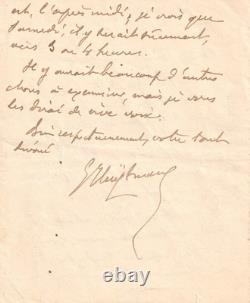 est, l'après midi, je crois que
Samedi, il y serait sûrement,
vers 3 ou 4 heures.
Il y aurait beaucoup d'autres
choses à examiner, mais je vous
les dirai de vive voix.
Bien respectueusement, votre tout
dévoué
© ebay